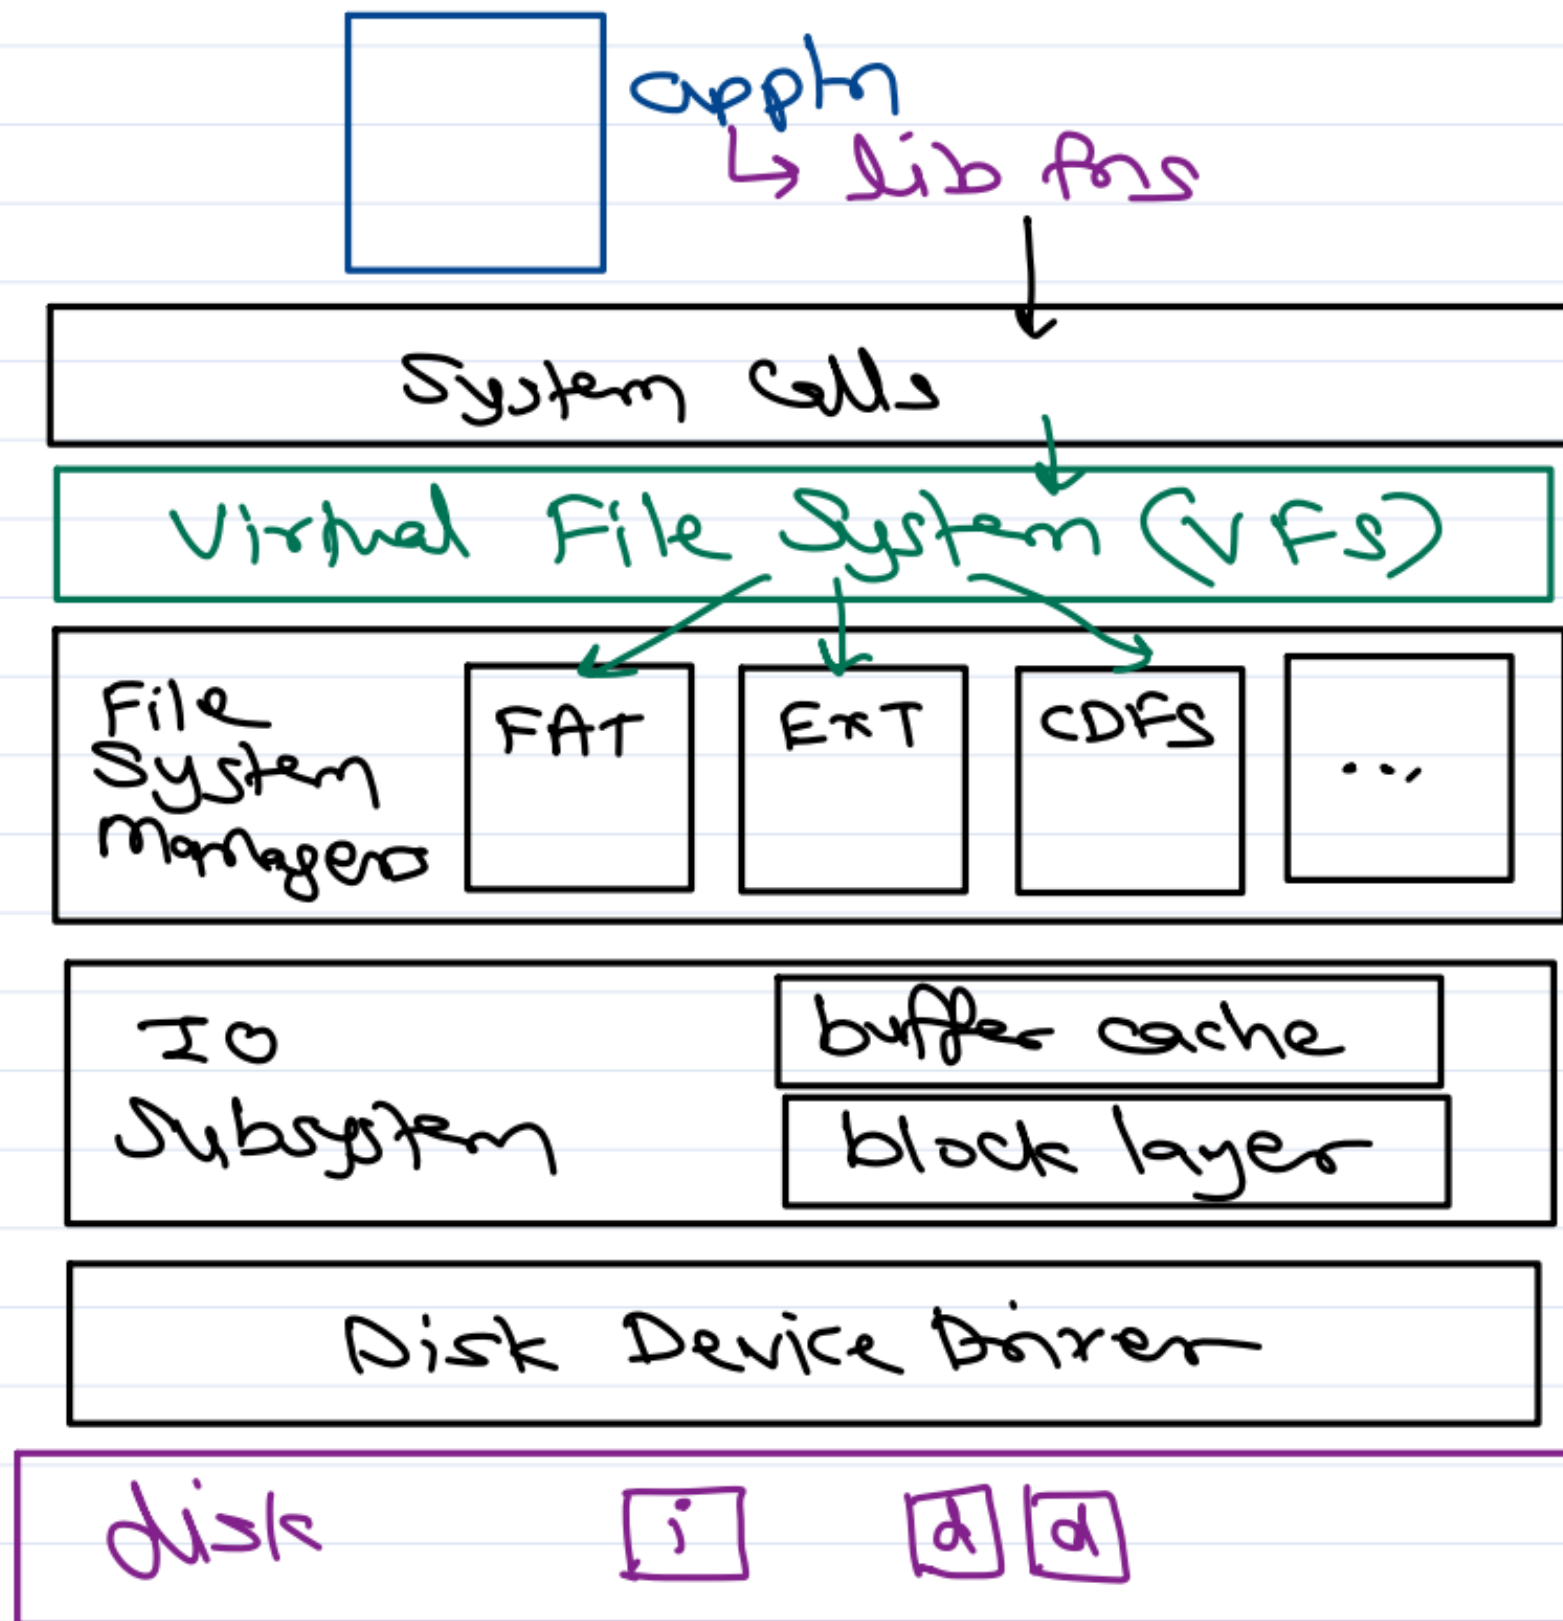 appln
↳ lib fns
System Calls
Virtual File System (VFS)
File
System
Managers
FAT
ExT
CDFS
...
IO
Subsystem
buffer cache
block layer
Disk Device Driver
disk
i
d
d